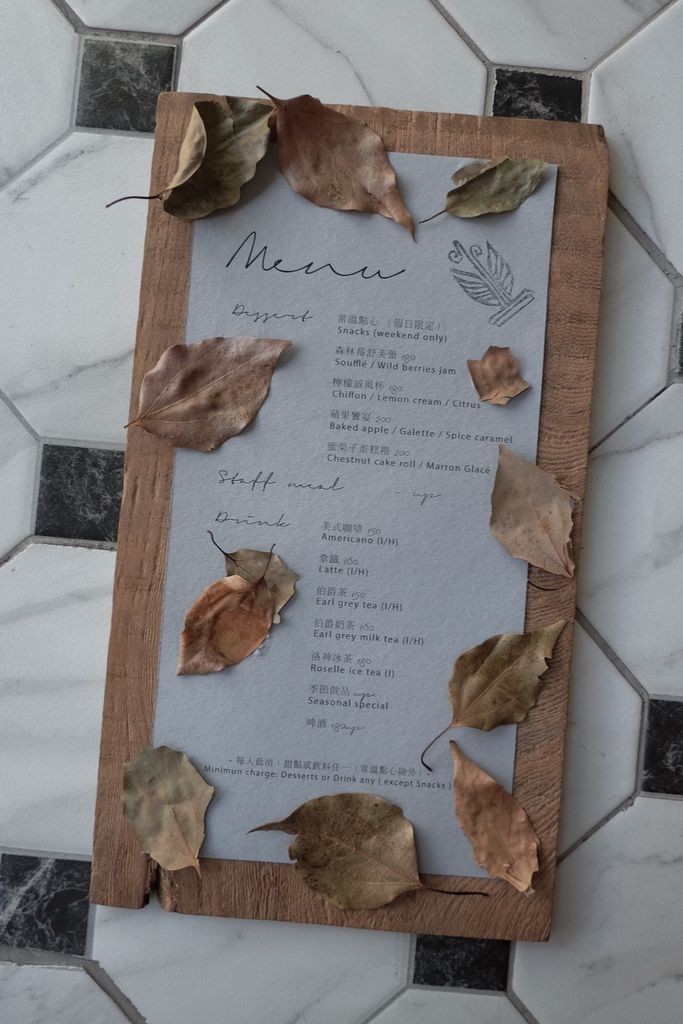 Menu
Dessert
常溫點心 (假日限定)
Snacks (weekend only)
森林莓舒芙蕾 180
Soufflé / Wild berries jam
檸檬戚風杯 180
Chiffon / Lemon cream / Citrus
蘋果饗宴 200
Baked apple / Galette / Spice caramel
蜜栗子蛋糕捲 200
Chestnut cake roll / Marron Glacé
Staff meal - up
Drink
美式咖啡 150
Americano (I/H)
拿鐵 160
Latte (I/H)
伯爵茶 150
Earl grey tea (I/H)
伯爵奶茶 160
Earl grey milk tea (I/H)
洛神冰茶 180
Roselle ice tea (I)
季節飲品 up
Seasonal special
啤酒 180up
- 每人低消：甜點或飲料任一 (常溫點心除外) -
Minimun charge: Desserts or Drink any ( except Snacks )